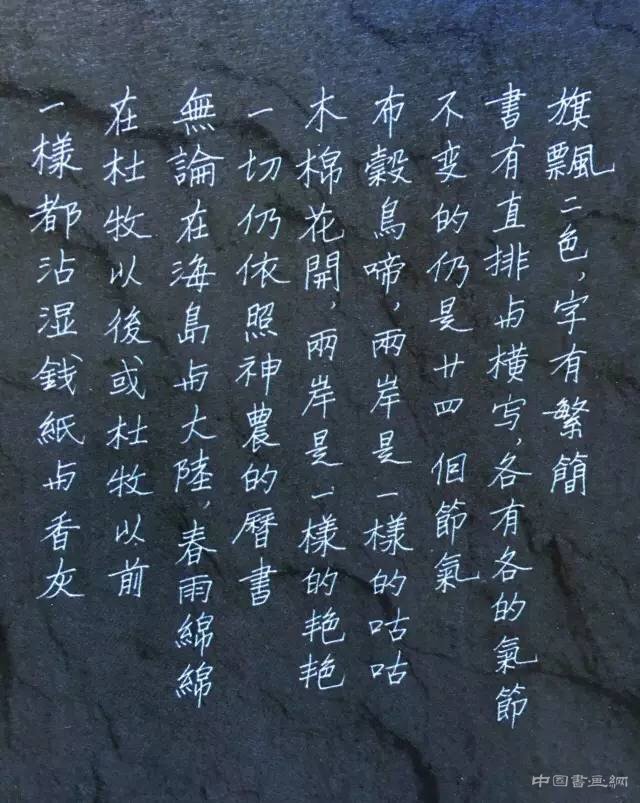 旗飄二色，字有繁簡
書有直排与横写，各有各的氣節
不变的仍是廿四個節氣
布穀鳥啼，兩岸是一樣的咕咕
木棉花開，兩岸是一樣的艳艳
一切仍依照神農的曆書
無論在海島与大陸，春雨綿綿
在杜牧以後或杜牧以前
一樣都沾湿銭紙与香灰
中国書画網